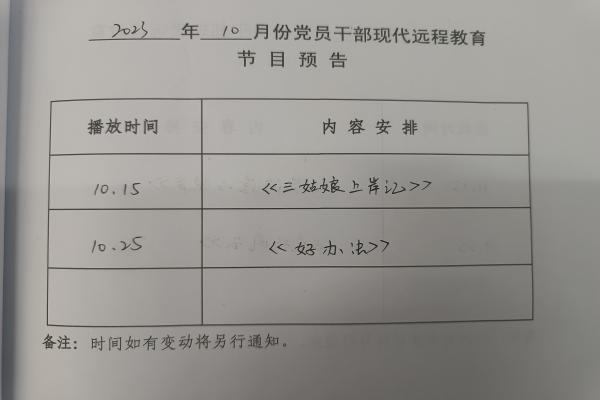 2023年10月份党员干部现代远程教育
节目预告
播放时间 内容安排
10.15 《三姑娘上岸记》
10.25 《好办法》
备注：时间如有变动将另行通知。